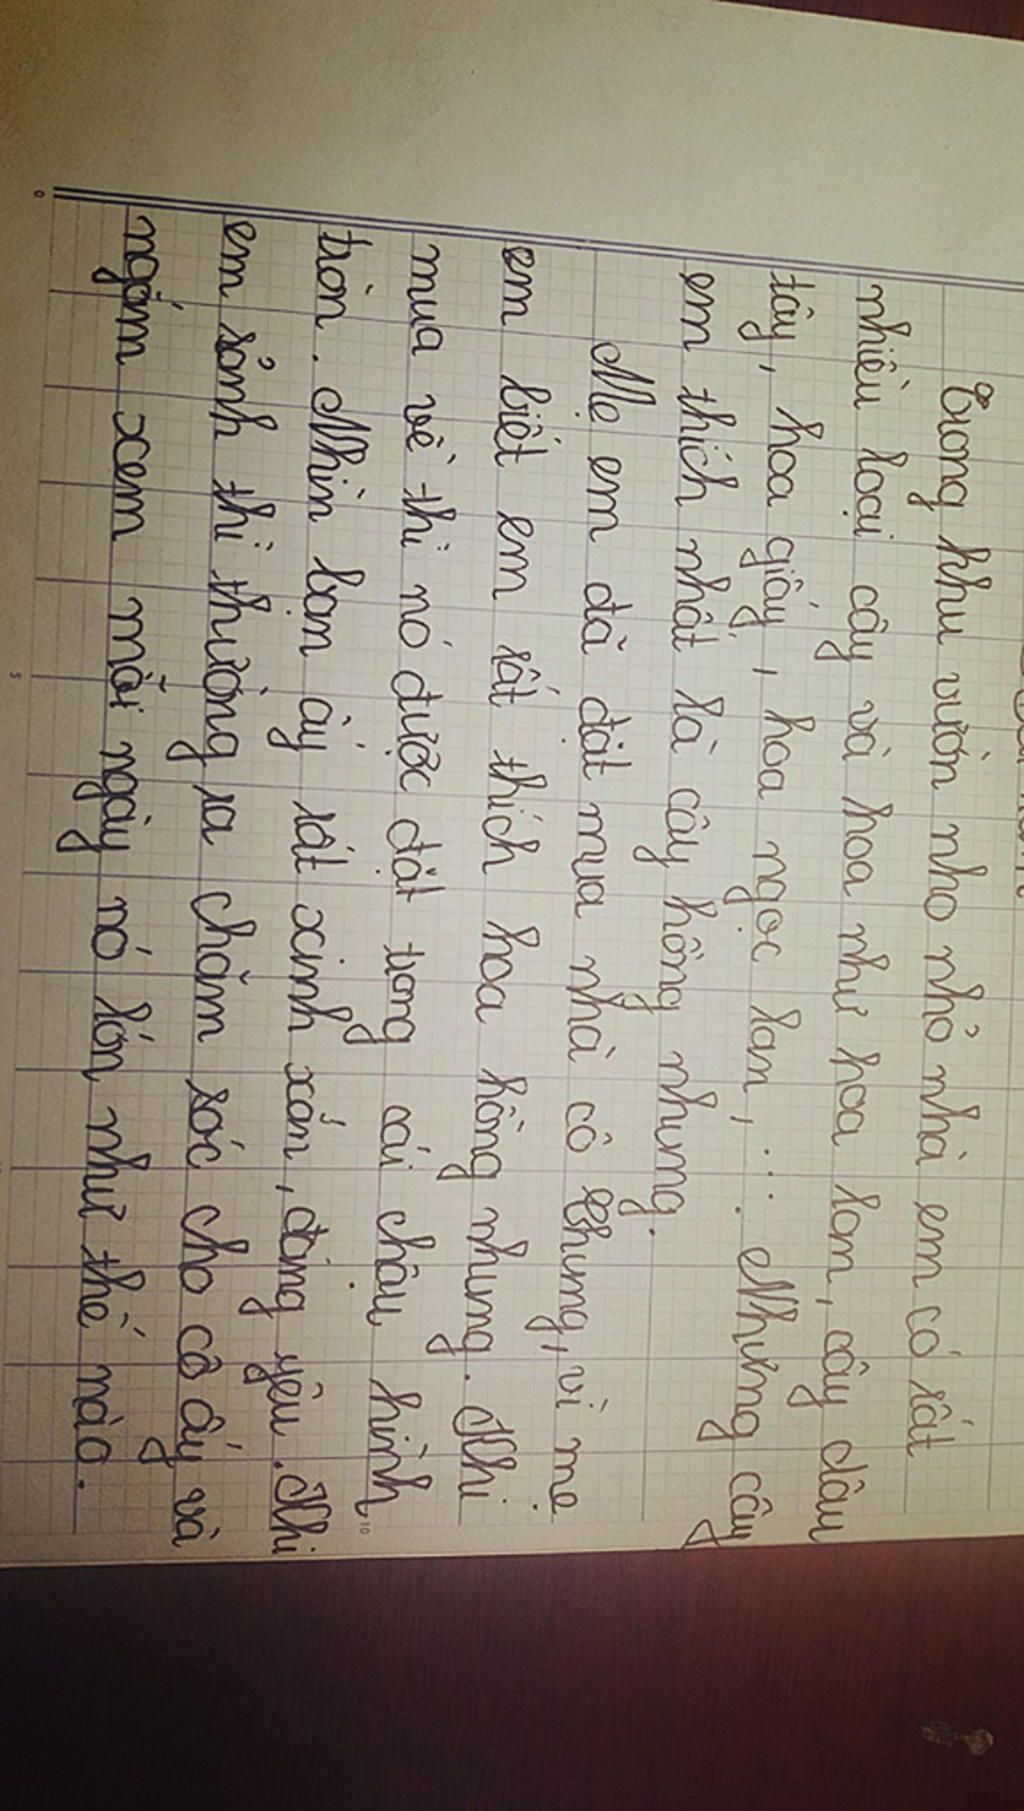 Trong khu vườn nho nhỏ nhà em có rất
nhiều loại cây và hoa như hoa lom, cây dâu
tây, hoa giấy, hoa ngọc lan, ... Nhưng cây
em thích nhất là cây hồng nhung.
Mẹ em đã đặt mua nhà cô Chung, vì mẹ
em biết em rất thích hoa hồng nhung. Khi
mua về thì nó được đặt trong cái chậu hình
tròn. Nhìn bạn ấy rất xinh xắn, đáng yêu. Khi
em sảnh thì thường ra chăm sóc cho cô ấy và
ngắm xem mỗi ngày nó lớn như thế nào.